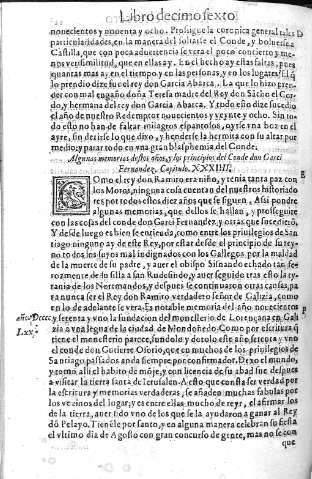 Libro decimo sexto
nouecientos y nouenta y ocho. Prosigue la coronica general tales
particularidades, en la manera del soltarse el Conde, y boluerse a
Castilla, que con poca aduertencia se vera el poco concierto y me-
nos verisimilitud, que en ellas ay. En el hecho ay estas faltas, pues
quantas mas ay en el tiempo y en las personas, y en los lugares? El q̃
lo prendio dize fue el rey don Garcia Abarca. La que lo hizo pren-
der con mal engaño doña Teresa madre del Rey don Sacho el Gor-
do, y hermana del rey don Garcia Abarca. Y todo esto dize sucedio
el año de nuestro Redemptor nouecientos y veynte y ocho. Sin to-
do esto no han de faltar milagros espantosos, oyrse vna boz en el
ayre, sin dezirse lo que dixo, y henderse la hermita con su altar por
medio, y parar todo en vna gran blasphemia del Conde.
Algunas memorias destos años, y los principios del Conde don Garci
Fernandez. Capitulo. XXXIIII.
COmo el rey don Ramiro era niño, y tenia tanta paz con
los Moros, ninguna cosa cuentan del nuestros historiado
res por todos estos diez años que se siguen. Assi pondre
algunas memorias, que dellos se hallan, y proseguire
con las cosas del conde don Garci Fernandez, y otras que sucediero.
Y desde luego es bien se entienda, como entre los priuilegios de San-
tiago ninguno ay de este Rey, por estar desde el principio de su rey-
no todos los suyos mal indignados con los Gallegos por la maldad
de la muerte de su padre, y auer el obispo Sisnando echado tan fe-
rozmente de su silla a san Rudesindo, y auer seguido tras esto la ty-
rania de los Normandos, y despues se continuaron otras causas, pa
ra nunca ser el Rey don Ramiro verdadero señor de Galizia, como
en lo de adelante se vera. Es notable memoria del año nouecientos
año. Dcccc.
y setenta y vno la fundacion del monesterio de Lorençana en Gali
Lxx.
zia a vna legua de la ciudad de Mondoñedo. Como por escritura q̃
tiene el monesterio parece, fundolo y dotolo este año, setenta y vno
el conde don Gutierre Osorio, que en muchos de los priuilegios de
Santiago passados anda siempre por confirmador. Dexo el mundo,
y como alli el habito de móje, y con licencia de su abad fue despues
a visitar la tierra santa de Ierusalen. A esto que consta ser verdad por
la escritura y memorias verdaderas, se añaden muchas fabulas por
los vezinos del lugar, y es entre ellas mucho de reyr, el afirmar los
de la tierra, auer sido vno de los que se la ayudaron a ganar al Rey
dõ Pelayo. Tienéle por santo, y en alguna manera celebran su fiesta
el vltimo dia de Agosto con gran concurso de gente, mas no se con
que